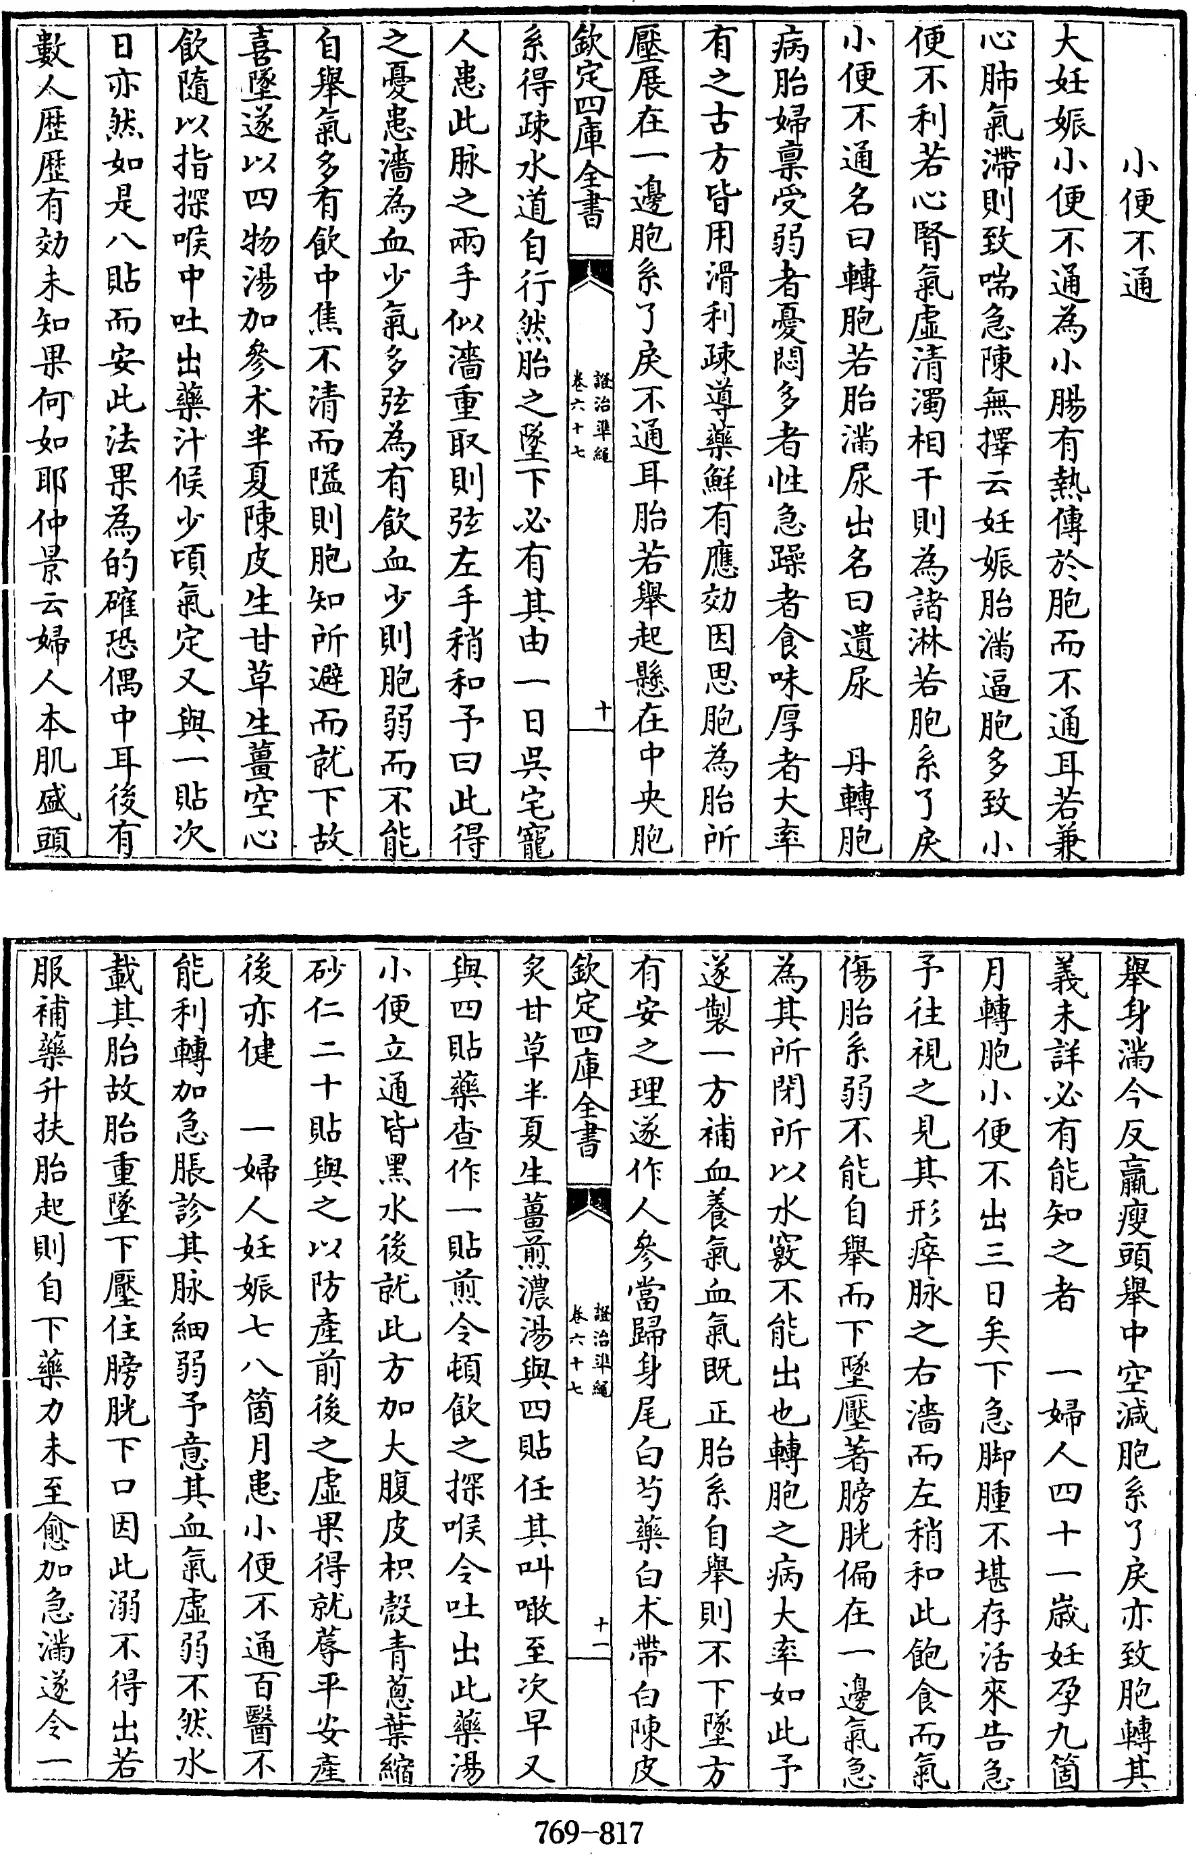 小便不通
大妊娠小便不通為小腸有熱傳於胞而不通耳若兼
心肺氣滯則致喘急陳無擇云妊娠胎滿逼胞多致小
便不利若心腎氣虛清濁相干則為諸淋若胞系了戾
小便不通名曰轉胞若胎滿尿出名曰遺尿　丹轉胞
病胎婦禀受弱者憂悶多者性急躁者食味厚者大率
有之古方皆用滑利疎導藥鮮有應効因思胞為胎所
壓展在一邊胞系了戾不通耳胎若舉起懸在中央胞
欽定四庫全書
證治準繩
卷六十七
十
系得疎水道自行然胎之墜下必有其由一日吳宅寵
人患此脉之兩手似濇重取則弦左手稍和予曰此得
之憂患濇為血少氣多弦為有飲血少則胞弱而不能
自舉氣多有飲中焦不清而隘則胞知所避而就下故
喜墜遂以四物湯加參术半夏陳皮生甘草生薑空心
飲隨以指探喉中吐出藥汁候少頃氣定又與一貼次
日亦然如是八貼而安此法果為的確恐偶中耳後有
數人歷歷有効未知果何如耶仲景云婦人本肌盛頭
舉身滿今反羸瘦頭舉中空減胞系了戾亦致胞轉其
義未詳必有能知之者　一婦人四十一歲妊孕九箇
月轉胞小便不出三日矣下急脚腫不堪存活來告急
予往視之見其形瘁脉之右濇而左稍和此飽食而氣
傷胎系弱不能自舉而下墜壓著膀胱偏在一邊氣急
為其所閉所以水竅不能出也轉胞之病大率如此予
遂製一方補血養氣血氣既正胎系自舉則不下墜方
有安之理遂作人參當歸身尾白芍藥白术帶白陳皮
欽定四庫全書
證治準繩
卷六十七
十一
炙甘草半夏生薑煎濃湯與四貼任其叫噉至次早又
與四貼藥查作一貼煎令頓飲之探喉令吐出此藥湯
小便立通皆黑水後就此方加大腹皮枳殼青蔥葉縮
砂仁二十貼與之以防產前後之虛果得就蓐平安產
後亦健　一婦人妊娠七八箇月患小便不通百醫不
能利轉加急脹診其脉細弱予意其血氣虛弱不然水
載其胎故胎重墜下壓住膀胱下口因此溺不得出若
服補藥升扶胎起則自下藥力未至愈加急滿遂令一
769-817